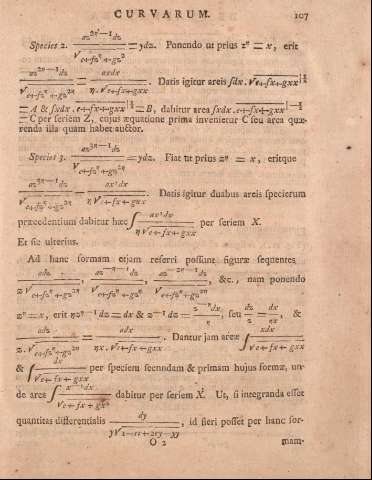 CURVARUM. 107
Species 2. az^{2η—1}dz / √e+fz^η+gz^{2η} = ydz. Ponendo ut prius z^η = x, erit
az^{2η—1}dz / √e+fz^η+gz^{2η} = axdx / η√e+fx+gxx. Datis igitur areis ∫dx.
= A & ∫xdx. = B, dabitur area ∫xdx.
= C per seriem Z, cujus æquatione prima invenietur C seu area quæ-
renda illa quam habet auctor.
Species 3. az^{3η—1}dz / √e+fz^η+gz^{2η} = ydz. Fiat ut prius z^η = x, eritque
az^{3η—1}dz / √e+fz^η+gz^{2η} = ax²dx / η√e+fx+gxx. Datis igitur duabus areis specierum
præcedentium dabitur hæc ∫ ax²dx / η√e+fx+gxx per seriem X.
Et sic ulterius.
Ad hanc formam etjam referri possunt figuræ sequentes
adz / z√e+fz^η+gz^{2η}, az^{—η—1}dz / √e+fz^η+gz^{2η}, az^{—2η—1}dz / √e+fz^η+gz^{2η}, &c., nam ponendo
z^η=x, erit ηz^{η—1}dz = dx & z^{—1}dz = , seu dz/z = dx/ηx, &
adz / z.√e+fz^η+gz^{2η} = adx / ηx.√e+fx+gxx. Dantur jam areæ ∫ xdx / √e+fx+gxx
& ∫ dx / √e+fx+gxx per speciem secundam & primam hujus formæ, un-
de area ∫ x^{—1}dx / √e+fx+gx² dabitur per seriem X. Ut, si integranda esset
quantitas differentialis dy / y√ , id fieri posset per hanc for-
O 2 mam-